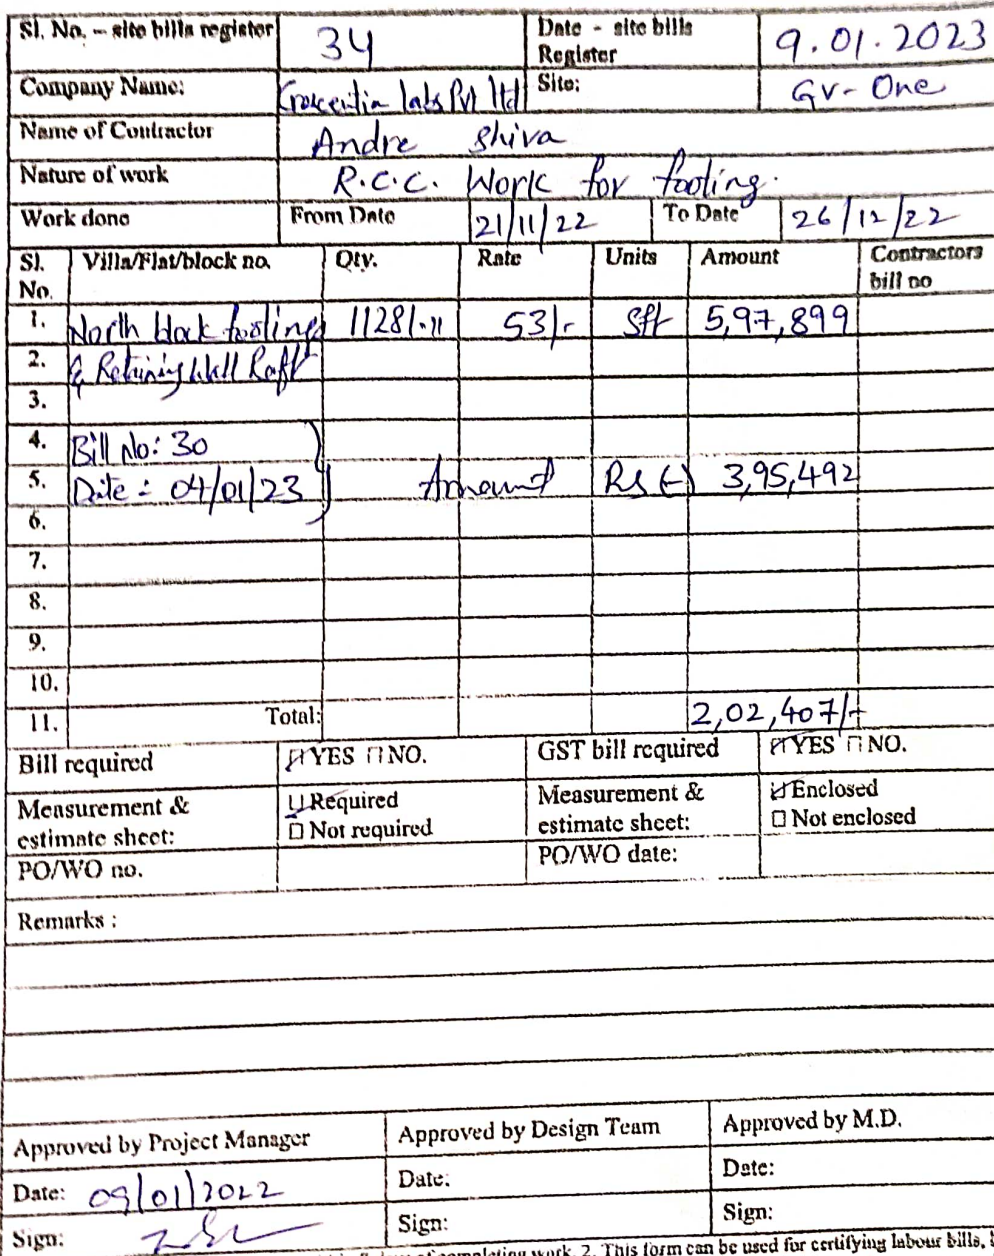 Sl. No. – site bills register 34 Date - site bills Register 9.01.2023
Company Name: Crescentia labs Pvt ltd Site: GV- One
Name of Contractor Andre Shiva
Nature of work R.C.C. Work for footing.
Work done From Date 21/11/22 To Date 26/12/22
Sl. No. Villa/Flat/block no. Qty. Rate Units Amount Contractors bill no
1. North block footings 11281.11 53/- Sft 5,97,899
2. & Retaining Wall Raft
3.
4. Bill No: 30
5. Date: 04/01/23 Amount Rs (-) 3,95,492
6.
7.
8.
9.
10.
11. Total: 2,02,407/-
Bill required YES NO. GST bill required YES NO.
Measurement & estimate sheet: Required Not required Measurement & estimate sheet: Enclosed Not enclosed
PO/WO no. PO/WO date:
Remarks :
Approved by Project Manager Approved by Design Team Approved by M.D.
Date: 09/01/2022 Date: Date:
Sign: Sign: Sign:
completing work. 2. This form can be used for certifying labour bills,